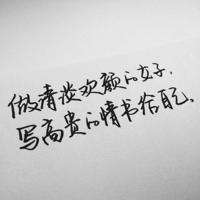 做清淡欢颜的女子，
写高贵的情书给自己。